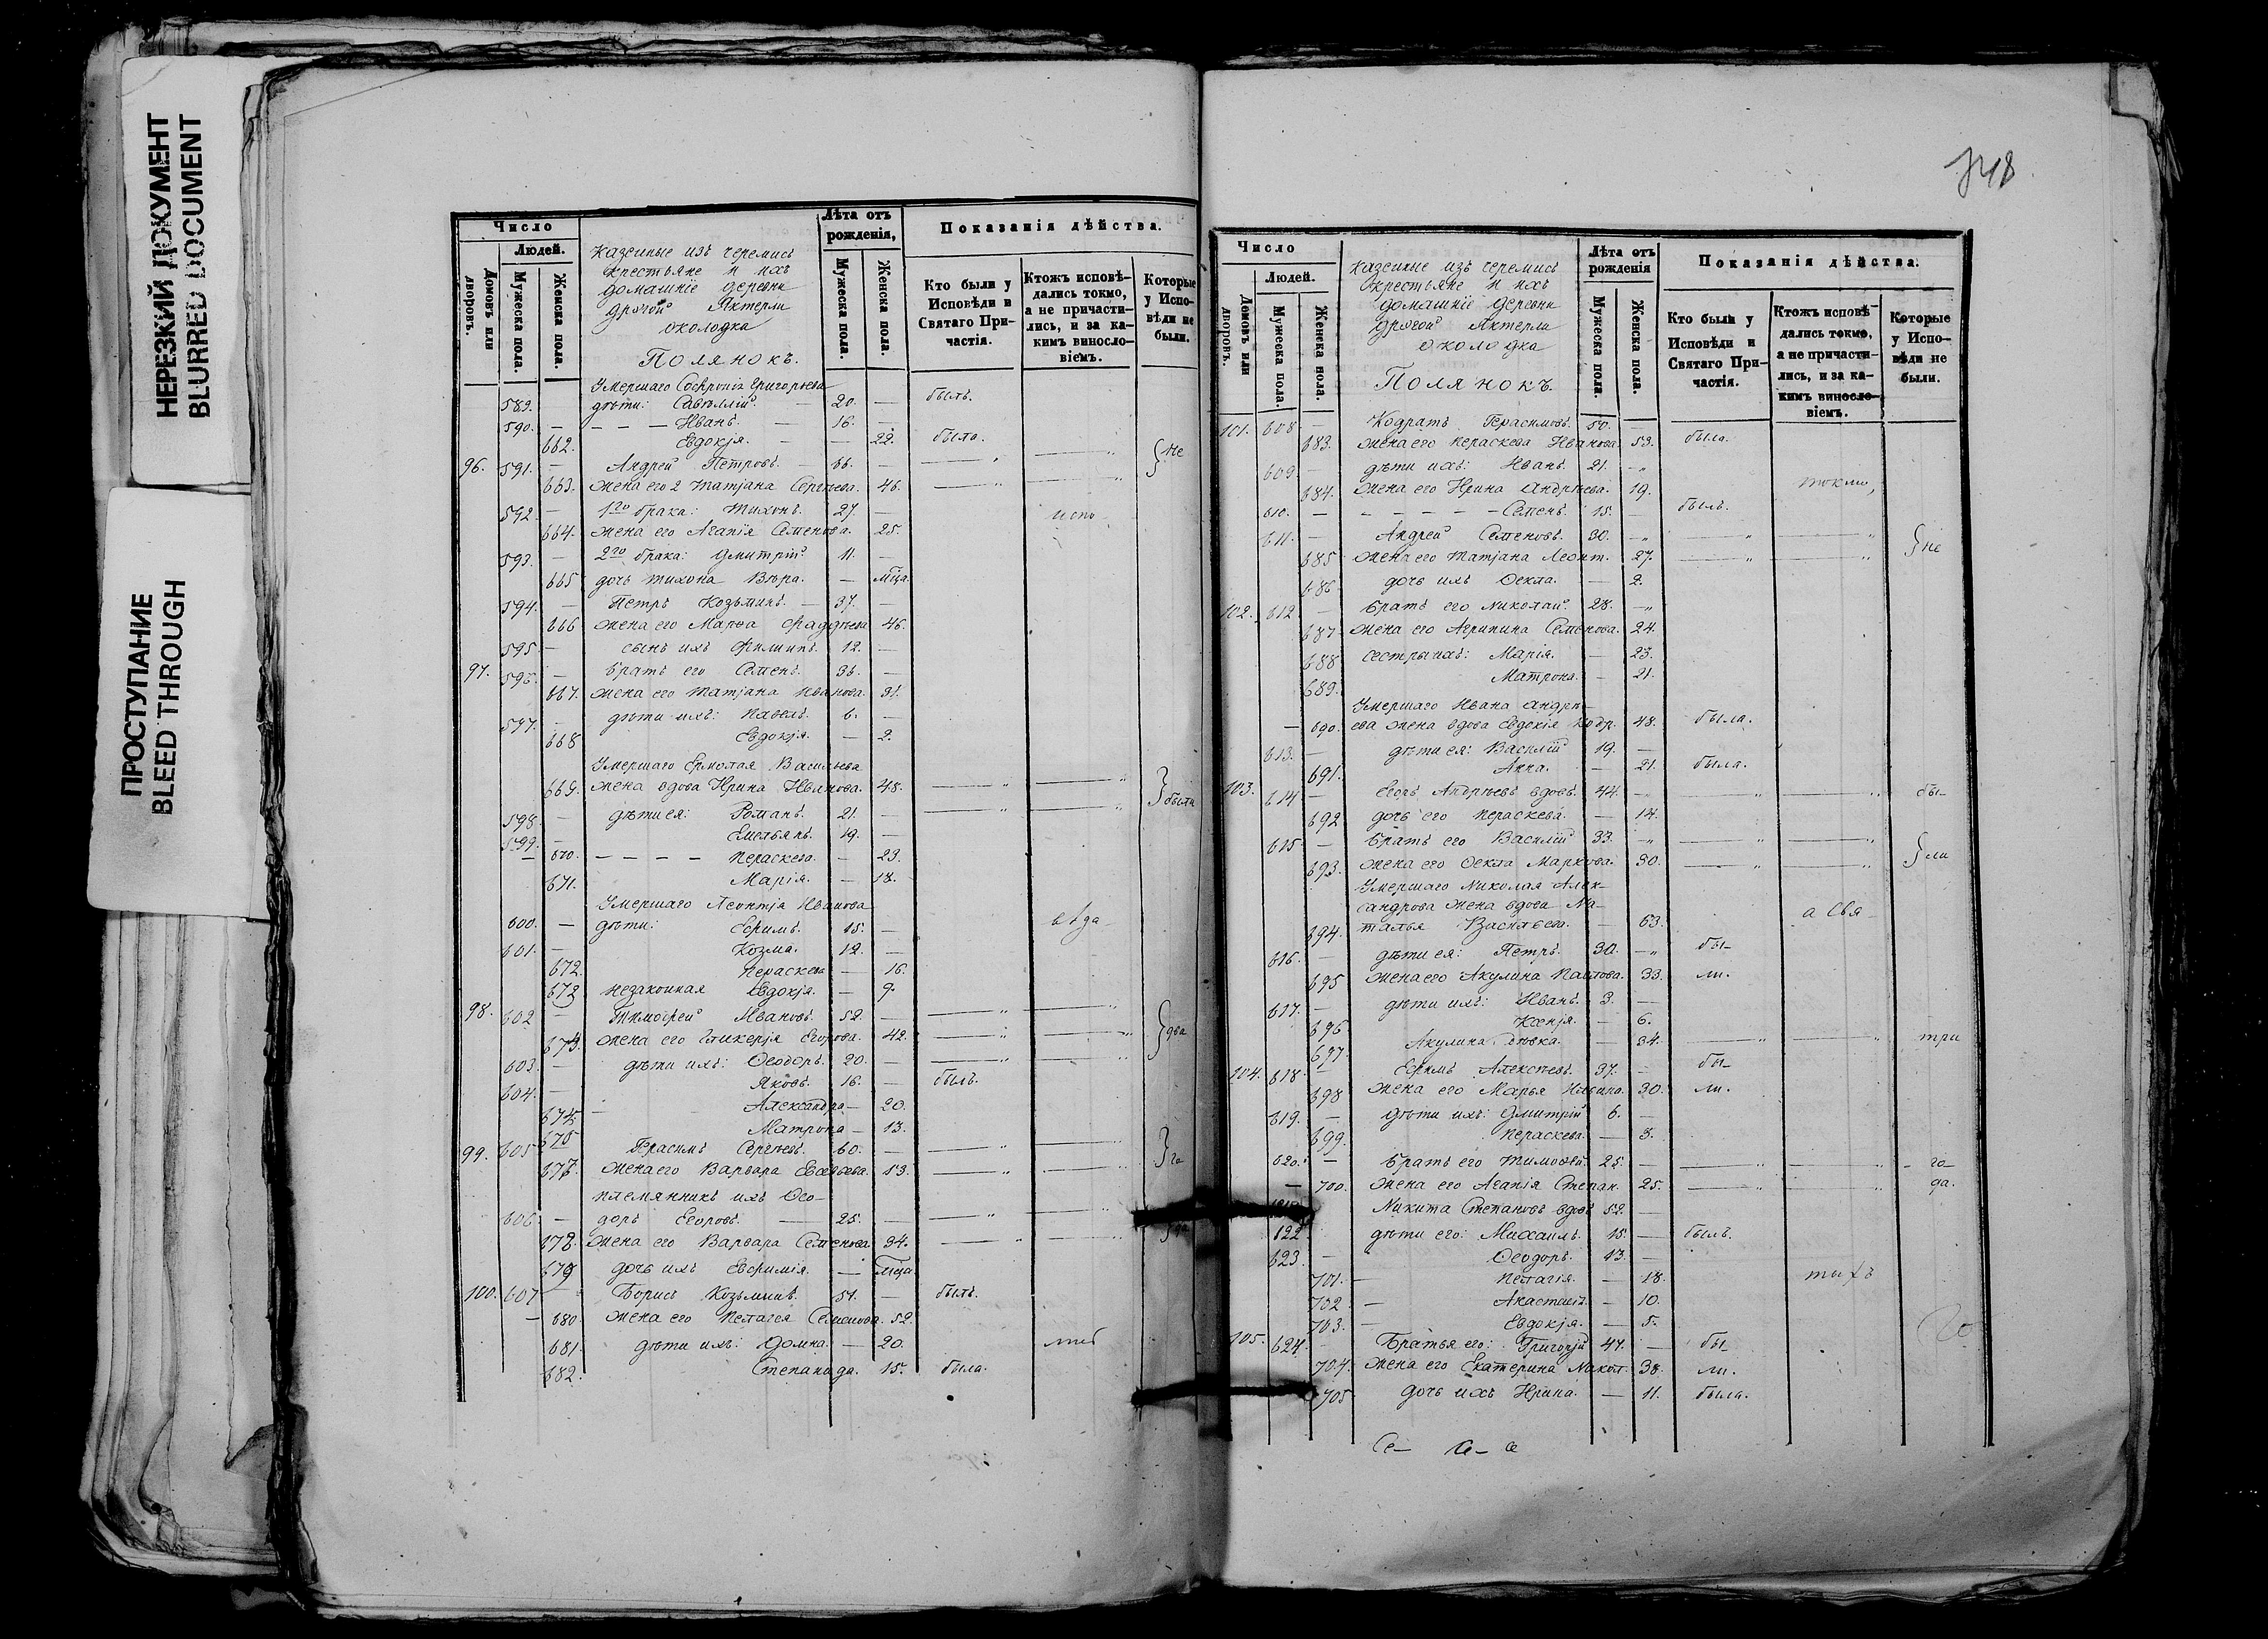 НЕРЕЗКИЙ ДОКУМЕНТ
BLURRED DOCUMENT
ПРОСТУПАНИЕ
BLEED THROUGH
Число
Людей.
Домовъ или дворовъ.
Мужеска пола.
Женска пола.
казенные изъ черемисъ
крестьяне и ихъ
домашніе деревни
другой Яктерли
околодка
Полянокъ.
Лѣта отъ рожденія,
Мужеска пола.
Женска пола.
Показанія дѣйства.
Кто были у Исповѣди и Святаго Причастія.
Ктожъ исповѣдались токмо, а не причастились, и за какимъ винословіемъ.
Которые у Исповѣди не были.
Умершаго Софронія Григорьева
589. дѣти: Савеллій. 20. — былъ.
590. — — — — Иванъ. — 16. —
662. Евдокія. — — 22. была.
96. 591. — Андрей Петровъ. — 66. — } не
663. жена его 2 Татіана Сергѣева. 46.
592. — 1го брака: Тихонъ. 27. — испо
664. жена его Агапія Семенова. 25.
593. — 2го брака: Дмитрій. 11. —
665 дочь Тихона Вѣра. — мца.
594. — Петръ Козьминъ. — 37. —
666 жена его Марѳа Фаддѣева 46.
595 — сынъ ихъ Филипъ. 12. —
97. 596. — Братъ его Семенъ. 36. —
667. жена его Татіана Иванова. 31.
597. — дѣти ихъ: Павелъ. 6. —
668 Евдокія. — 2.
Умершаго Ермолая Васильева
669. жена вдова Ирина Иванова. 48. } были
598. — дѣти ея: Романъ. 21. —
599. Емельянъ. 19. —
— 670. — — — — Пераскева. — 23.
671. Марія. — 18.
Умершаго Леонтія Иванова
600. — дѣти: Ефимъ. 15. — вѣда
601. — Козма. 12. —
672. Пераскева — 16.
672 незаконная Евдокія. — 9.
98. 602 — Тимофей Ивановъ. 52. —
673. жена его Гликерія Егорова. 42. } два
603. — дѣти ихъ: Ѳеодоръ. 20. —
604. — Яковъ. 16. — былъ.
674. — Александра — 20.
675 Матрона — 13.
99. 605 — Герасимъ Сергѣевъ. 60. —
677. жена его Варвара Евсѣева. 53. } го
племянникъ ихъ Ѳео-
606. — доръ Егоровъ. — 25. —
678. жена его Варвара Семенова. 34.
679 дочь ихъ Евфимія. — мца
100. 607 — Борисъ Козьминъ. 51. — былъ.
— 680. жена его Пелагея Семенова. 52.
681. дѣти ихъ: Домна. — 20.
682. Степанида. 15. была.
748
Число
Людей.
Домовъ или дворовъ.
Мужеска пола.
Женска пола.
казенные изъ черемисъ
крестьяне и ихъ
домашніе деревни
другой Яктерли
околодка
Полянокъ.
Лѣта отъ рожденія
Мужеска пола.
Женска пола.
Показанія дѣйства.
Кто были у Исповѣди и Святаго Причастія.
Ктожъ исповѣдались токмо, а не причастились, и за какимъ винословіемъ.
Которые у Исповѣди не были.
101. 608 — Кодратъ Герасимовъ. 50. —
683. жена его Пераскева Иванова. 53. была.
609 — дѣти ихъ: Иванъ. 21. —
684. жена его Ирина Андрѣева. 19. токмо,
610. — — — — — Семенъ. 15. — былъ.
611. — Андрей Семеновъ. 30. —
685 жена его Татіана Леонт. 27. } не
686 дочь ихъ Ѳекла. — 2.
102. 612 — Братъ его Николай. 28. —
687 жена его Агрипина Семенова. 24.
688 сестры ихъ: Марія. — 23.
689. Матрона. — 21.
Умершаго Ивана Андрѣ-
— 690. ева жена вдова Евдокія Кодр. 48. была.
613. — дѣти ея: Василій 19. —
691. Анна. — 21. была.
103. 614 — Егоръ Андрѣевъ вдовъ. 44. — бы-
692 дочь его Пераскева. — 14.
615 — Братъ его Василій 33. —
693. жена его Ѳекла Маркова. 30. } ли
Умершаго Николая Алек-
сандрова жена вдова На- а Свя-
694. талья Васильева. — 63.
616. — дѣти ея: Петръ. 30. — бы-
695 жена его Акулина Павлова. 33. ли.
617. — дѣти ихъ: Иванъ. 3. —
696. Ксенія. — 6.
697. Акулина дѣвка. — 34. три
104. 618. — Ефимъ Алексѣевъ. 37. — бы-
698 жена его Марья Ильина. 30. ли.
619. — дѣти ихъ: Дмитрій 6. —
699. Пераскева. — 3.
620. — Братъ его Тимоѳей. 25. — го-
— 700. жена его Агапія Степан. 25. да.
Никита Степановъ вдовъ 52. —
622 дѣти его: Михаилъ. 15. — былъ.
623. — Ѳеодоръ. 13. —
701. — Пелагія. — 18. тыхъ
702 — Анастасія. — 10.
703. — Евдокія. — 5.
105. 624. — Братья его: Григорій 47. — бы-
704. жена его Екатерина Никол. 38. ли.
705 дочь ихъ Ирина. — 11. была.